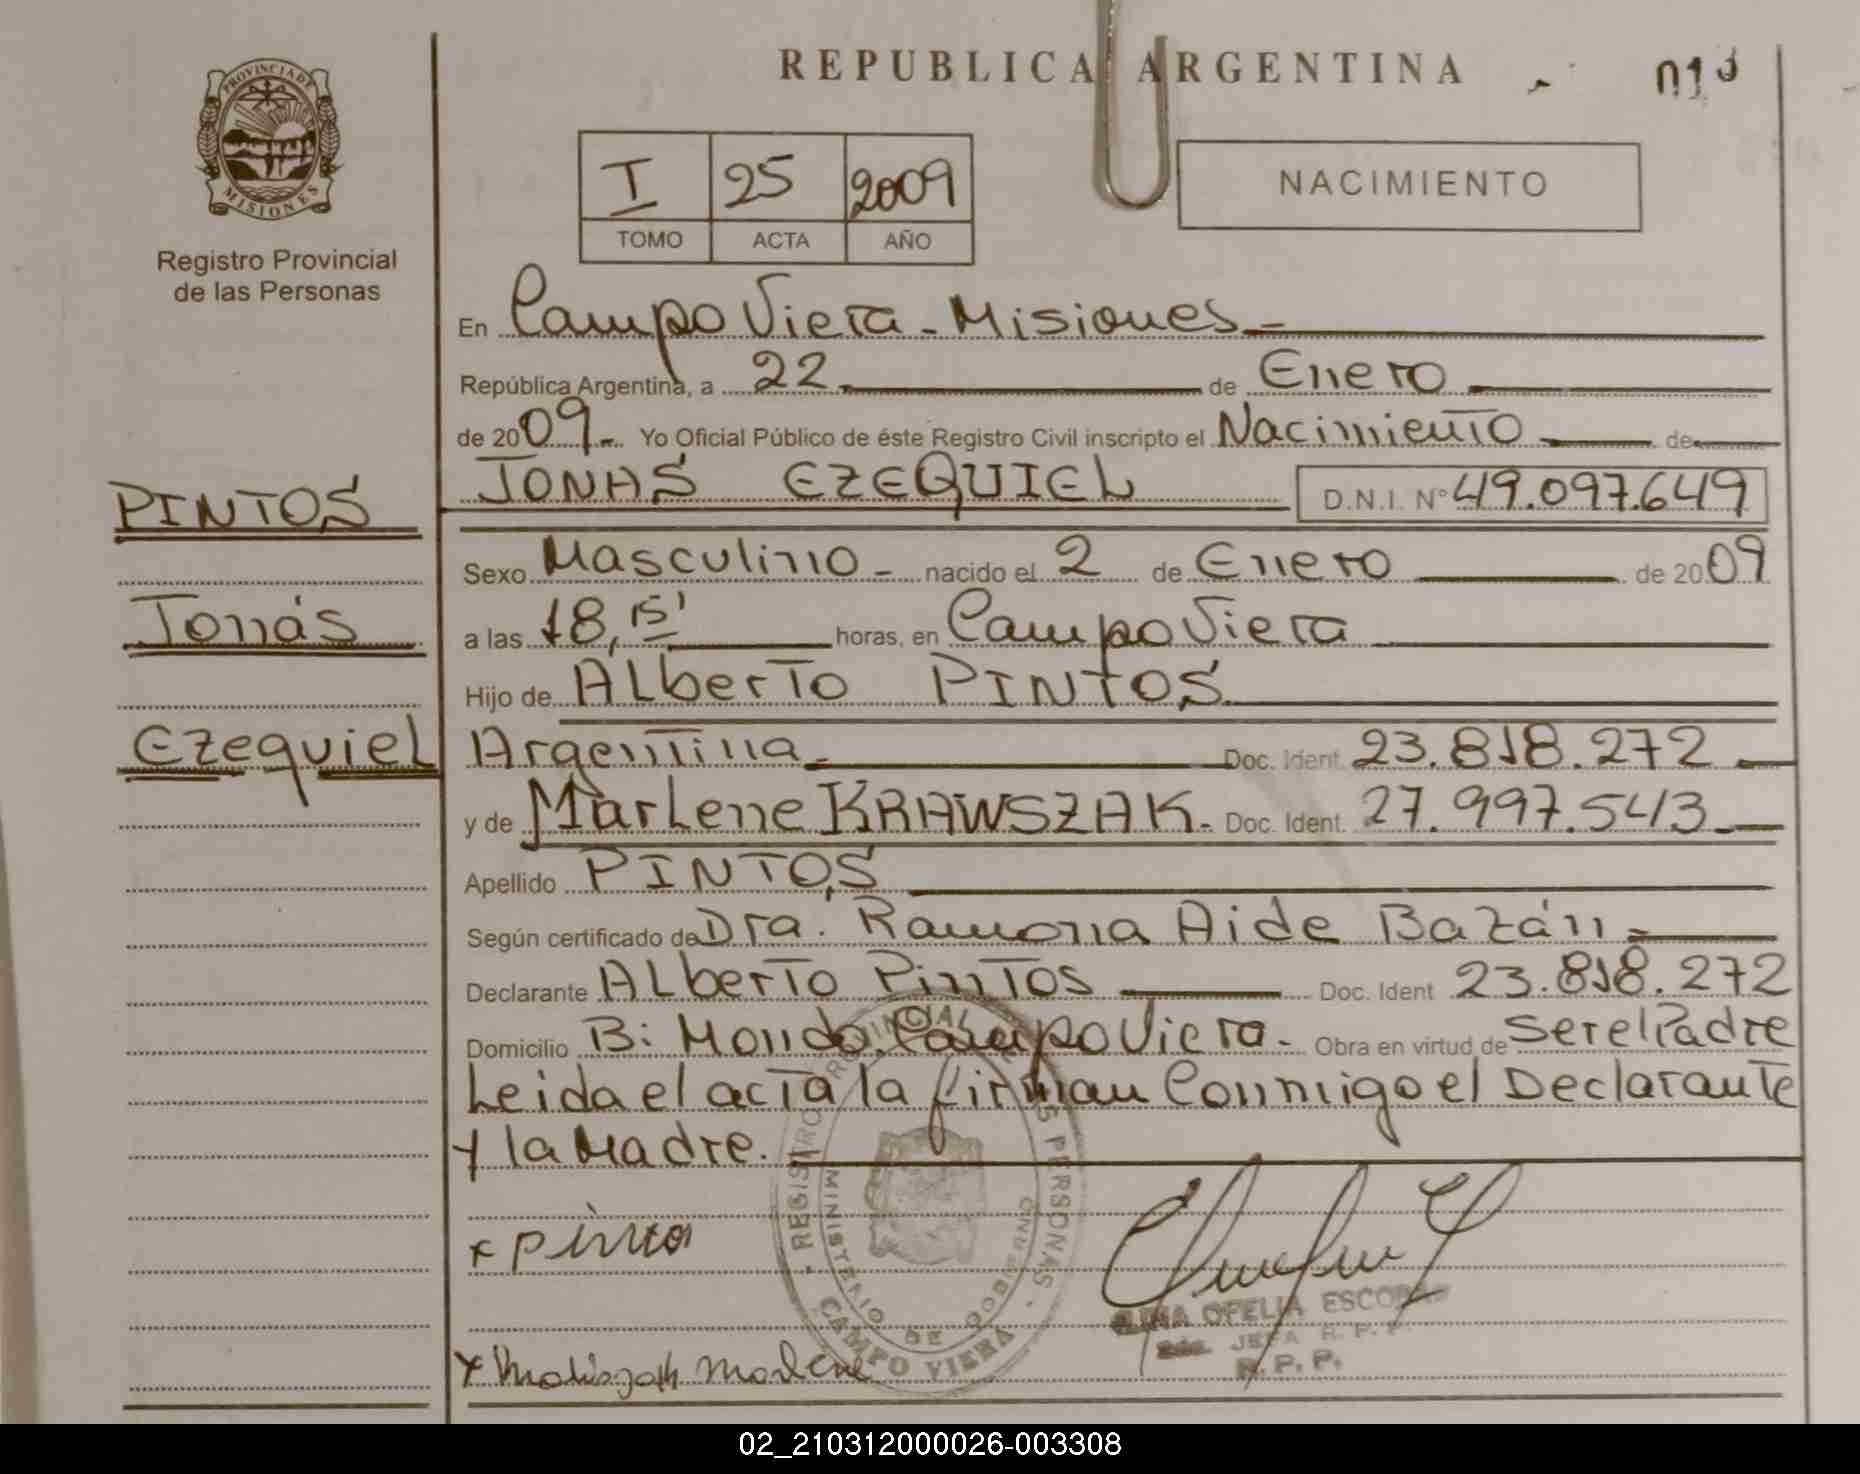 REPUBLICA ARGENTINA
PROVINCIA DE
MISIONES
Registro Provincial
de las Personas
I 25 2009
TOMO ACTA AÑO
NACIMIENTO
En Campo Viera - Misiones
República Argentina, a 22 de Enero
de 2009 Yo Oficial Público de éste Registro Civil inscripto el Nacimiento de
JONAS EZEQUIEL D.N.I. Nº 49.097.649
PINTOS
Jonás
Ezequiel
Sexo Masculino nacido el 2 de Enero de 2009
a las 18,15' horas, en Campo Viera
Hijo de Alberto PINTOS
Argentina Doc. Ident. 23.818.272
y de Marlene KRAWSZAK. Doc. Ident. 27.997.543
Apellido PINTOS
Según certificado de Dra. Ramona Aide Bazán
Declarante Alberto Pintos Doc. Ident 23.818.272
Domicilio B: Mondo. Campo Viera. Obra en virtud de Ser el Padre
Leida el acta la firman Conmigo el Declarante
y la Madre.
REGISTRO PROVINCIAL PERSONAS
MINISTERIO DE GOBIERNO
CAMPO VIERA
OFELIA ESCOBAR
JEFA R. P. P.
R. P. P.
Marlene
02_210312000026-003308